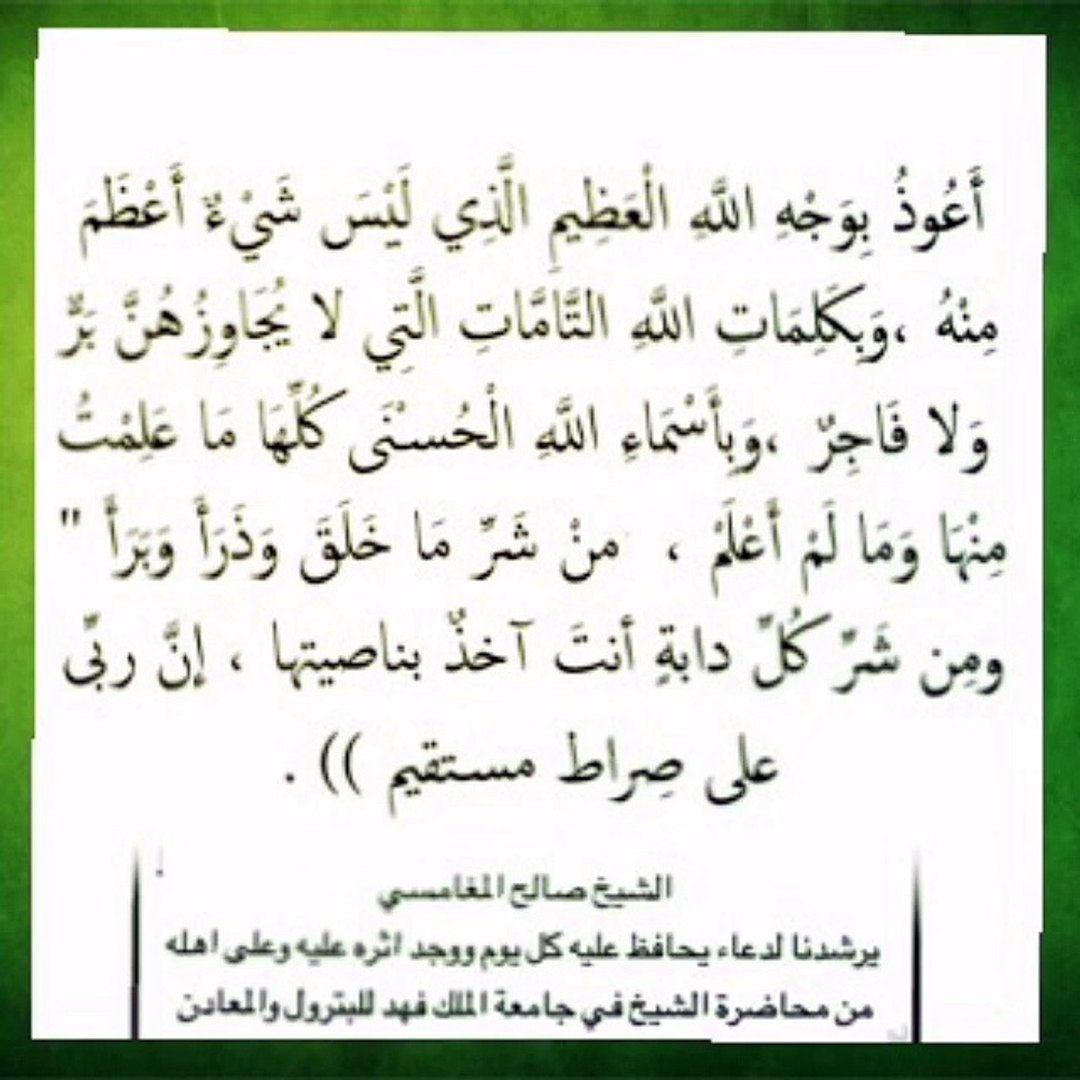 أَعُوذُ بِوَجْهِ اللَّهِ الْعَظِيمِ الَّذِي لَيْسَ شَيْءٌ أَعْظَمَ
مِنْهُ ،وَبِكَلِمَاتِ اللَّهِ التَّامَّاتِ الَّتِي لا يُجَاوِزُهُنَّ بَرٌّ
وَلا فَاجِرٌ ،وَبِأَسْمَاءِ اللَّهِ الْحُسْنَى كُلِّهَا مَا عَلِمْتُ
مِنْهَا وَمَا لَمْ أَعْلَمْ ، منْ شَرِّ مَا خَلَقَ وَذَرَأَ وَبَرَأَ "
ومِن شَرِّ كُلِّ دابةٍ أنتَ آخذٌ بناصيتها ، إنَّ ربِّى
على صِراط مستقيم )) .
الشيخ صالح المغامسي
يرشدنا لدعاء يحافظ عليه كل يوم ووجد اثره عليه وعلى اهله
من محاضرة الشيخ في جامعة الملك فهد للبترول والمعادن